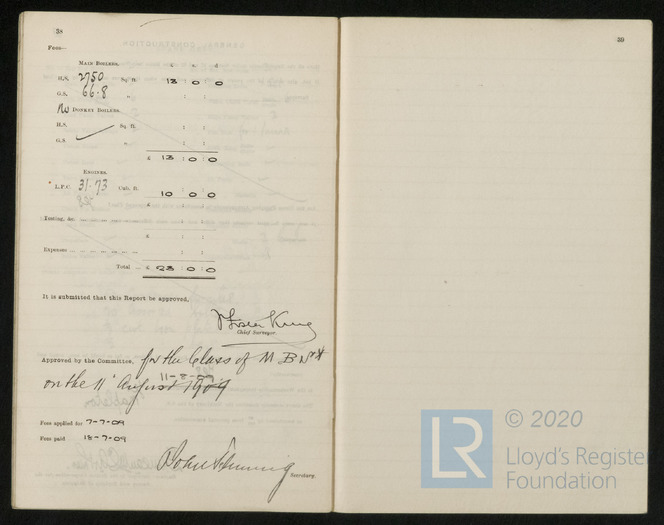 38
Fees—
MAIN BOILERS. £ s. d.
H.S. 2750 Sq. ft. 13 : 0 : 0
G.S. 66.8 „ : :
No DONKEY BOILERS.
H.S. Sq. ft. : :
G.S. „ : :
£ 13 : 0 : 0
ENGINES.
L.P.C. 31.73 Cub. ft. 10 : 0 : 0
£ : :
Testing, &c. : :
£ : :
Expenses : :
Total £ 23 : 0 : 0
It is submitted that this Report be approved,
King
Chief Surveyor.
Approved by the Committee, for the Class of M B
11-8-09
on the 11th August 1909
Fees applied for 7-7-09
Fees paid 18-7-09
Secretary.
39
LR © 2020
Lloyd's Register
Foundation